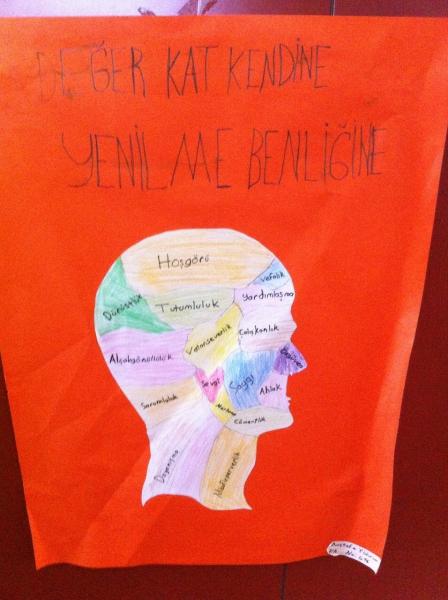 DEĞER KAT KENDİNE
YENİLME BENLİĞİNE
Hoşgörü
Vefalık
Dürüstlük
Tutumluluk
Yardımlaşma
Vatanseverlik
Çalışkanlık
Alçakgönüllülük
Özgüven
Sevgi
Saygı
Ahlak
Sorumluluk
Merhamet
Cömertlik
Dayanışma
Misafirperverlik